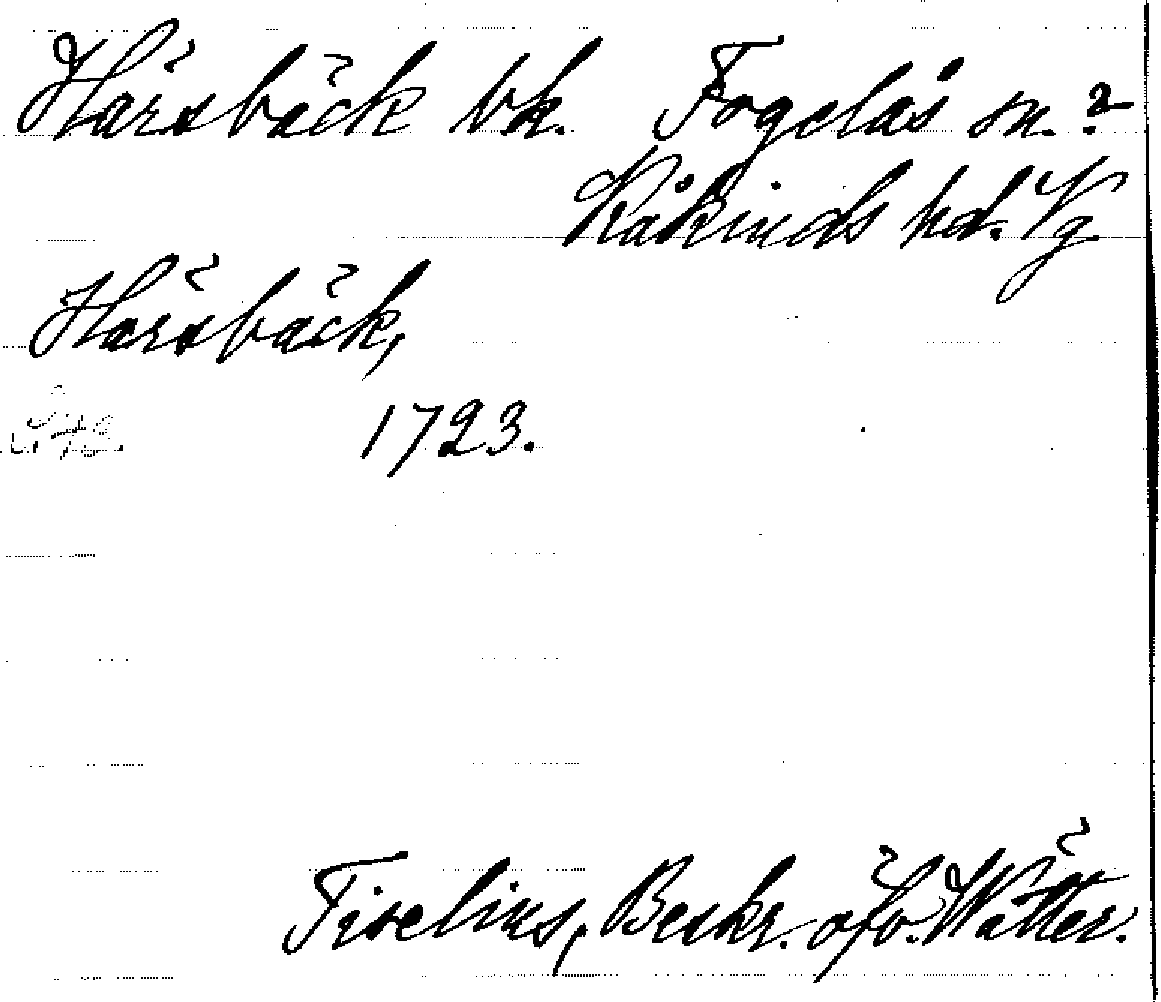 Härsbäck bk. Fogelås sn.?
Kåkinds hd. Vg
Härsbäck,
1723.
Tiselius, Beskr. öfv. Wätter.